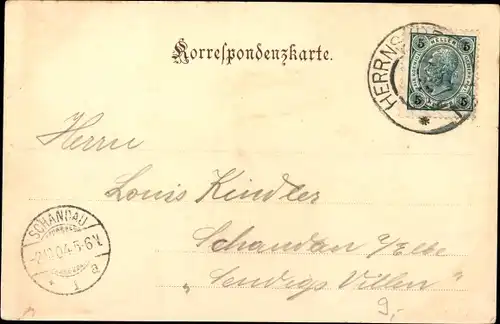 Korrespondenzkarte.
HERRNS
5 HELLER 5
5 5
Herrn
Louis Kindler
Schandau a/Elbe
"Sendigs Villen"
9.
SCHANDAU
2.10.04.5-6N.
* 1 a